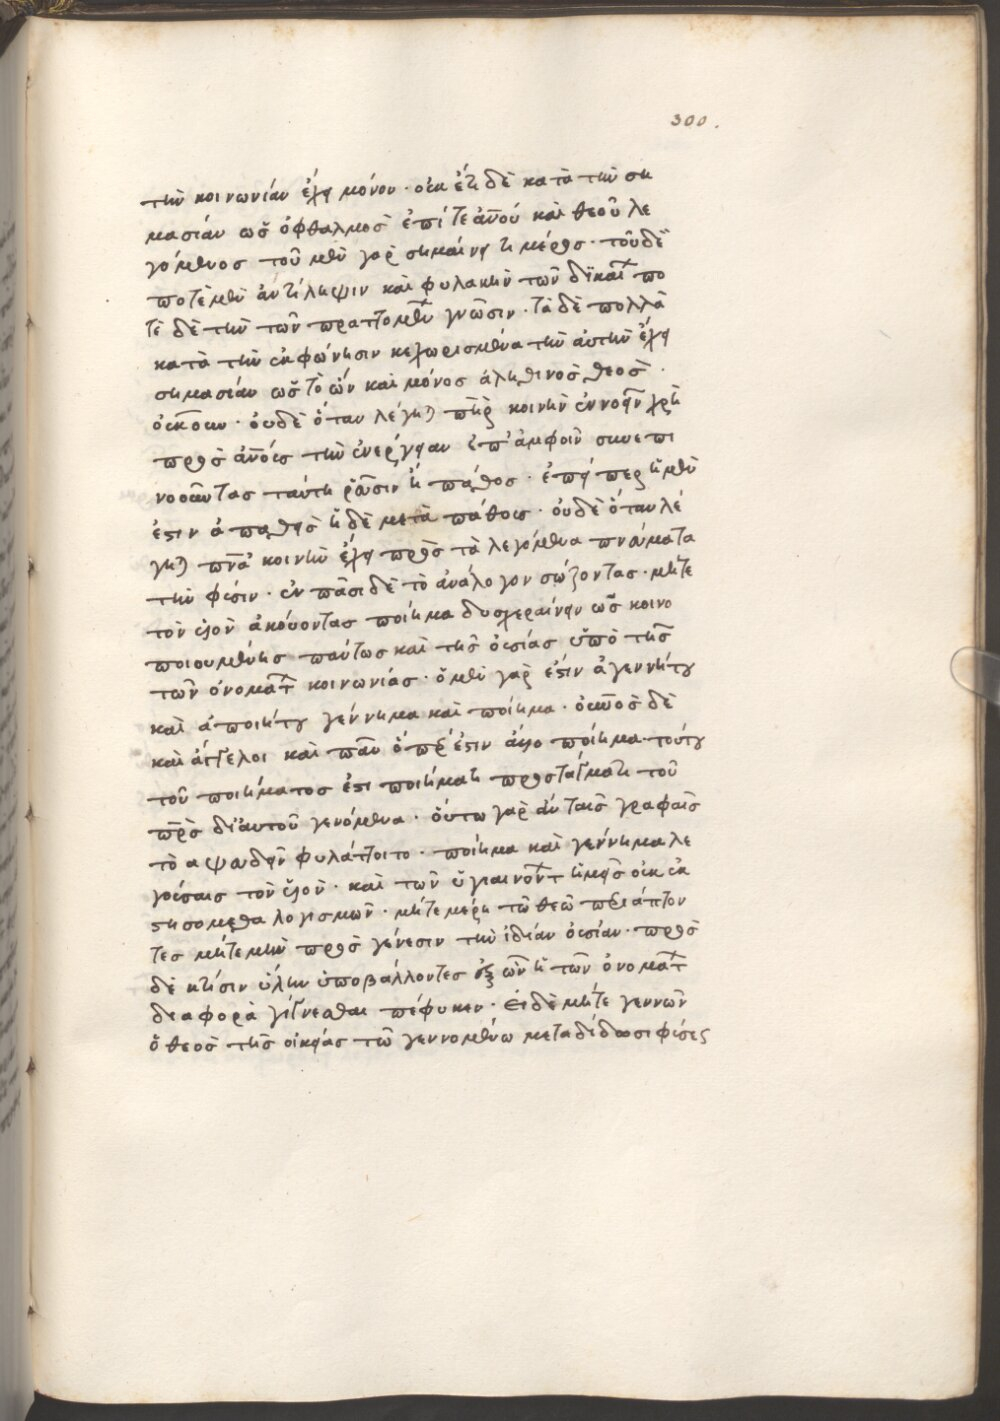 300.
τὴν κοινωνίαν ἔχει μόνον· οὐκ ἔτι δὲ κατὰ τὴν ση
μασίαν ὡς ὀφθαλμὸς ἐπί τε ἀνοῦ καὶ θεοῦ λε
γόμενος τοῦ μὲν γὰρ σημαίνει τι μέρος· τοῦ δὲ
ποτὲ μὲν ἀντίληψιν καὶ φυλακὴν τῶν δικαί πο
τὲ δὲ τὴν τῶν πραττομέν γνῶσιν· τὰ δὲ πολλὰ
κατὰ τὴν ἐκφώνησιν κεχωρισμένα τὴν αὐτὴν ἔχει
σημασίαν ὡς τὸ ὢν καὶ μόνος ἀληθινὸς θεὸς·
οὐκοῦν· οὐδὲ ὅταν λέγη πὴρ κοινὴν ἐννοεῖν χρὴ
πρὸς ἀνοὺς τὴν ἐνέργειαν ἐπ' ἀμφοῖν συνεπι
νοοῦντας ταύτη ῥεῦσιν ἢ πάθος· ἐπείπερ ἡ μὲν
ἐστιν ἀπαθὴς ἡ δὲ μετὰ πάθους· οὐδὲ ὅταν λέ
γη πνα κοινὴν ἔχει πρὸς τὰ λεγόμενα πνεύματα
τὴν φύσιν· ἐν πᾶσι δὲ τὸ ἀνάλογον σώζοντας· μήτε
τὸν υἱὸν ἀκούοντας ποίημα δυσχεραίνειν ὡς κοινο
ποιουμένης πάντως καὶ τῆς οὐσίας ὑπὸ τῆς
τῶν ὀνομάτ κοινωνίας· ὁ μὲν γὰρ ἐστιν ἀγεννήτου
καὶ ἀποιήτου γέννημα καὶ ποίημα· οὐνος δὲ
καὶ ἄγγελοι καὶ πᾶν ὅπερ ἐστιν ἄλλο ποίημα· τούτου
τοῦ ποιήματος ἐστι ποιήματι προστάγματι τοῦ
πρς δι' αὐτοῦ γενόμενα· οὕτω γὰρ ἂν ταῖς γραφαῖς
τὸ αψευδεῖν φυλάττοιτο· ποίημα καὶ γέννημα λε
γούσαις τὸν υἱὸν· καὶ τῶν ὑγιαινόντ ἡμεῖς οὐκ ἐκ
στησόμεθα λογισμῶν· μήτε μέρη τῶ θεῶ περιάπτον
τες μήτε μὴν πρὸς γένεσιν τὴν ἰδίαν οὐσίαν· πρὸς
δὲ κτίσιν ὕλην ὑποβάλλοντες ἐξ ὧν ἡ τῶν ὀνομάτ
διαφορὰ γίγνεσθαι πέφυκεν· εἰ δὲ μήτε γεννῶν
ὁ θεὸς τῆς οἰκείας τῶ γεννομένω μεταδίδωσι φύσεως